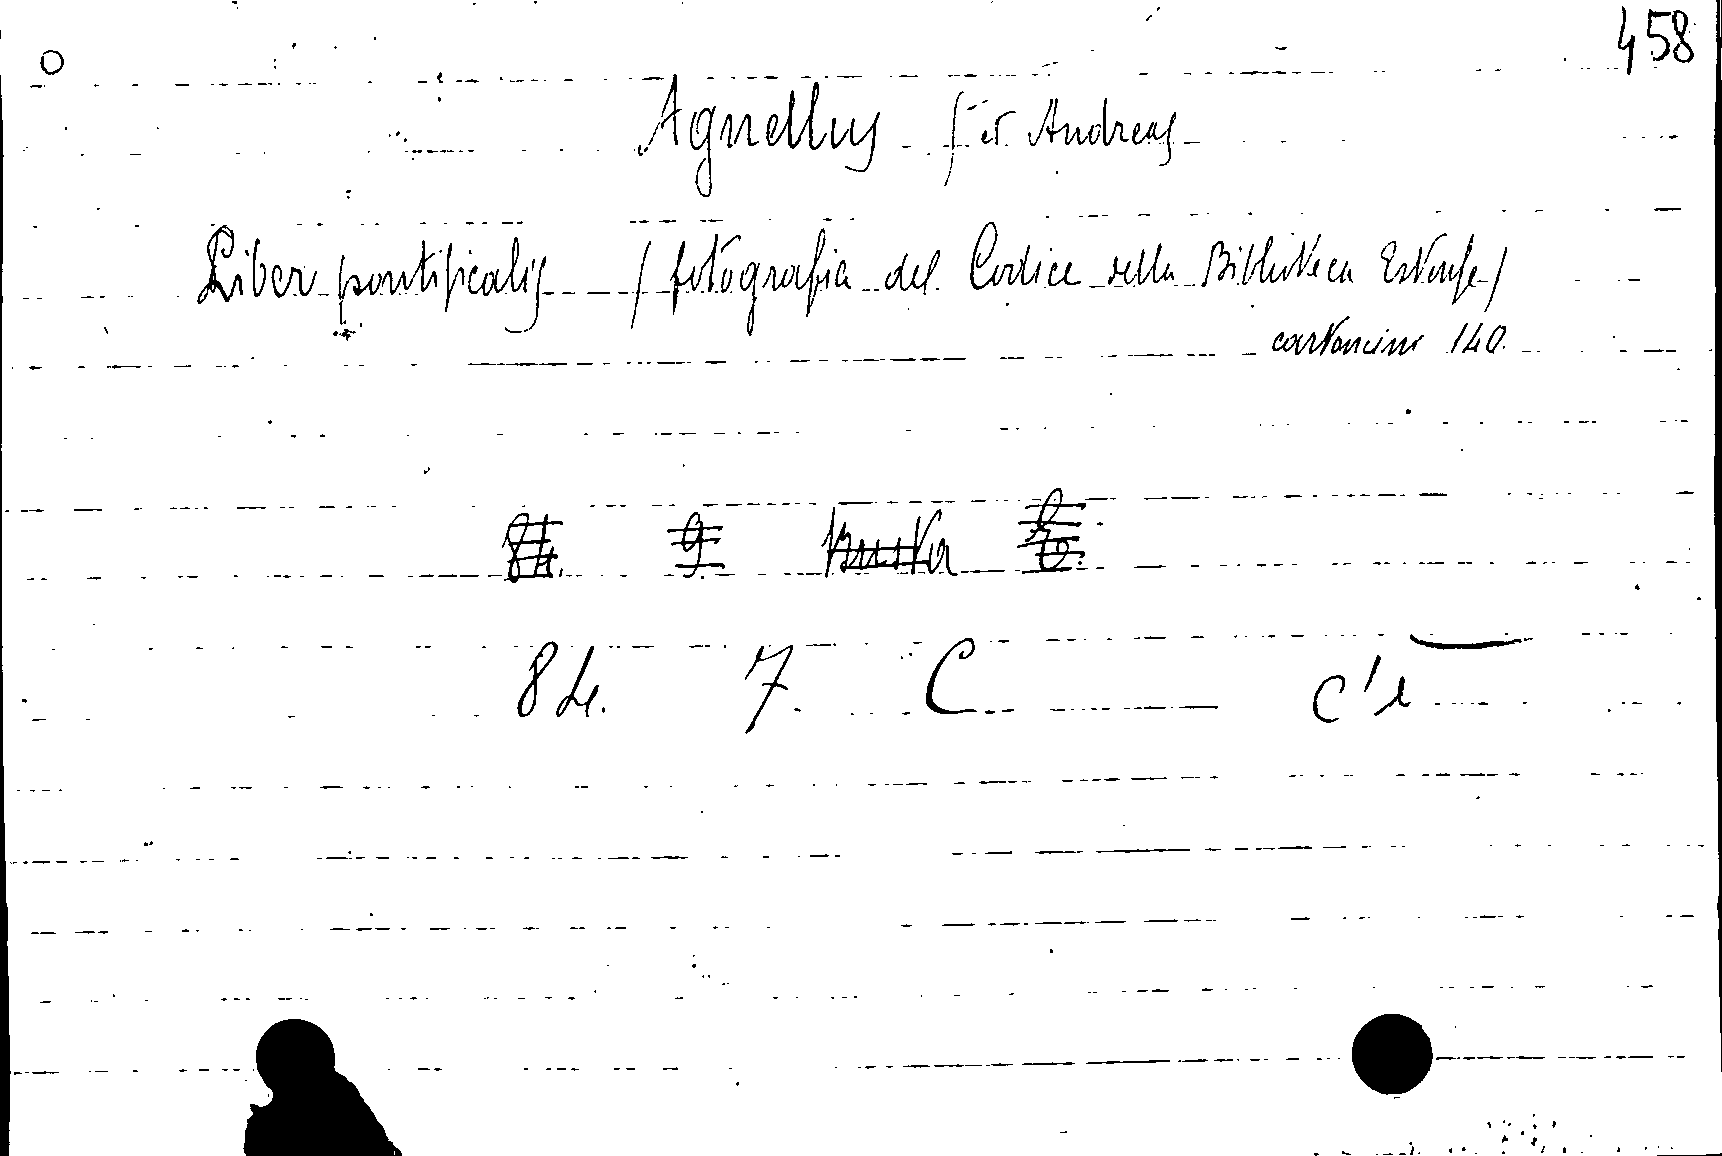 458
Agnellus ( et Andreas
Liber pontificalis ( fotografia del Codice della Biblioteca Estense )
cartoncini 140.
84. 9. Busta
84. 7. C c'è